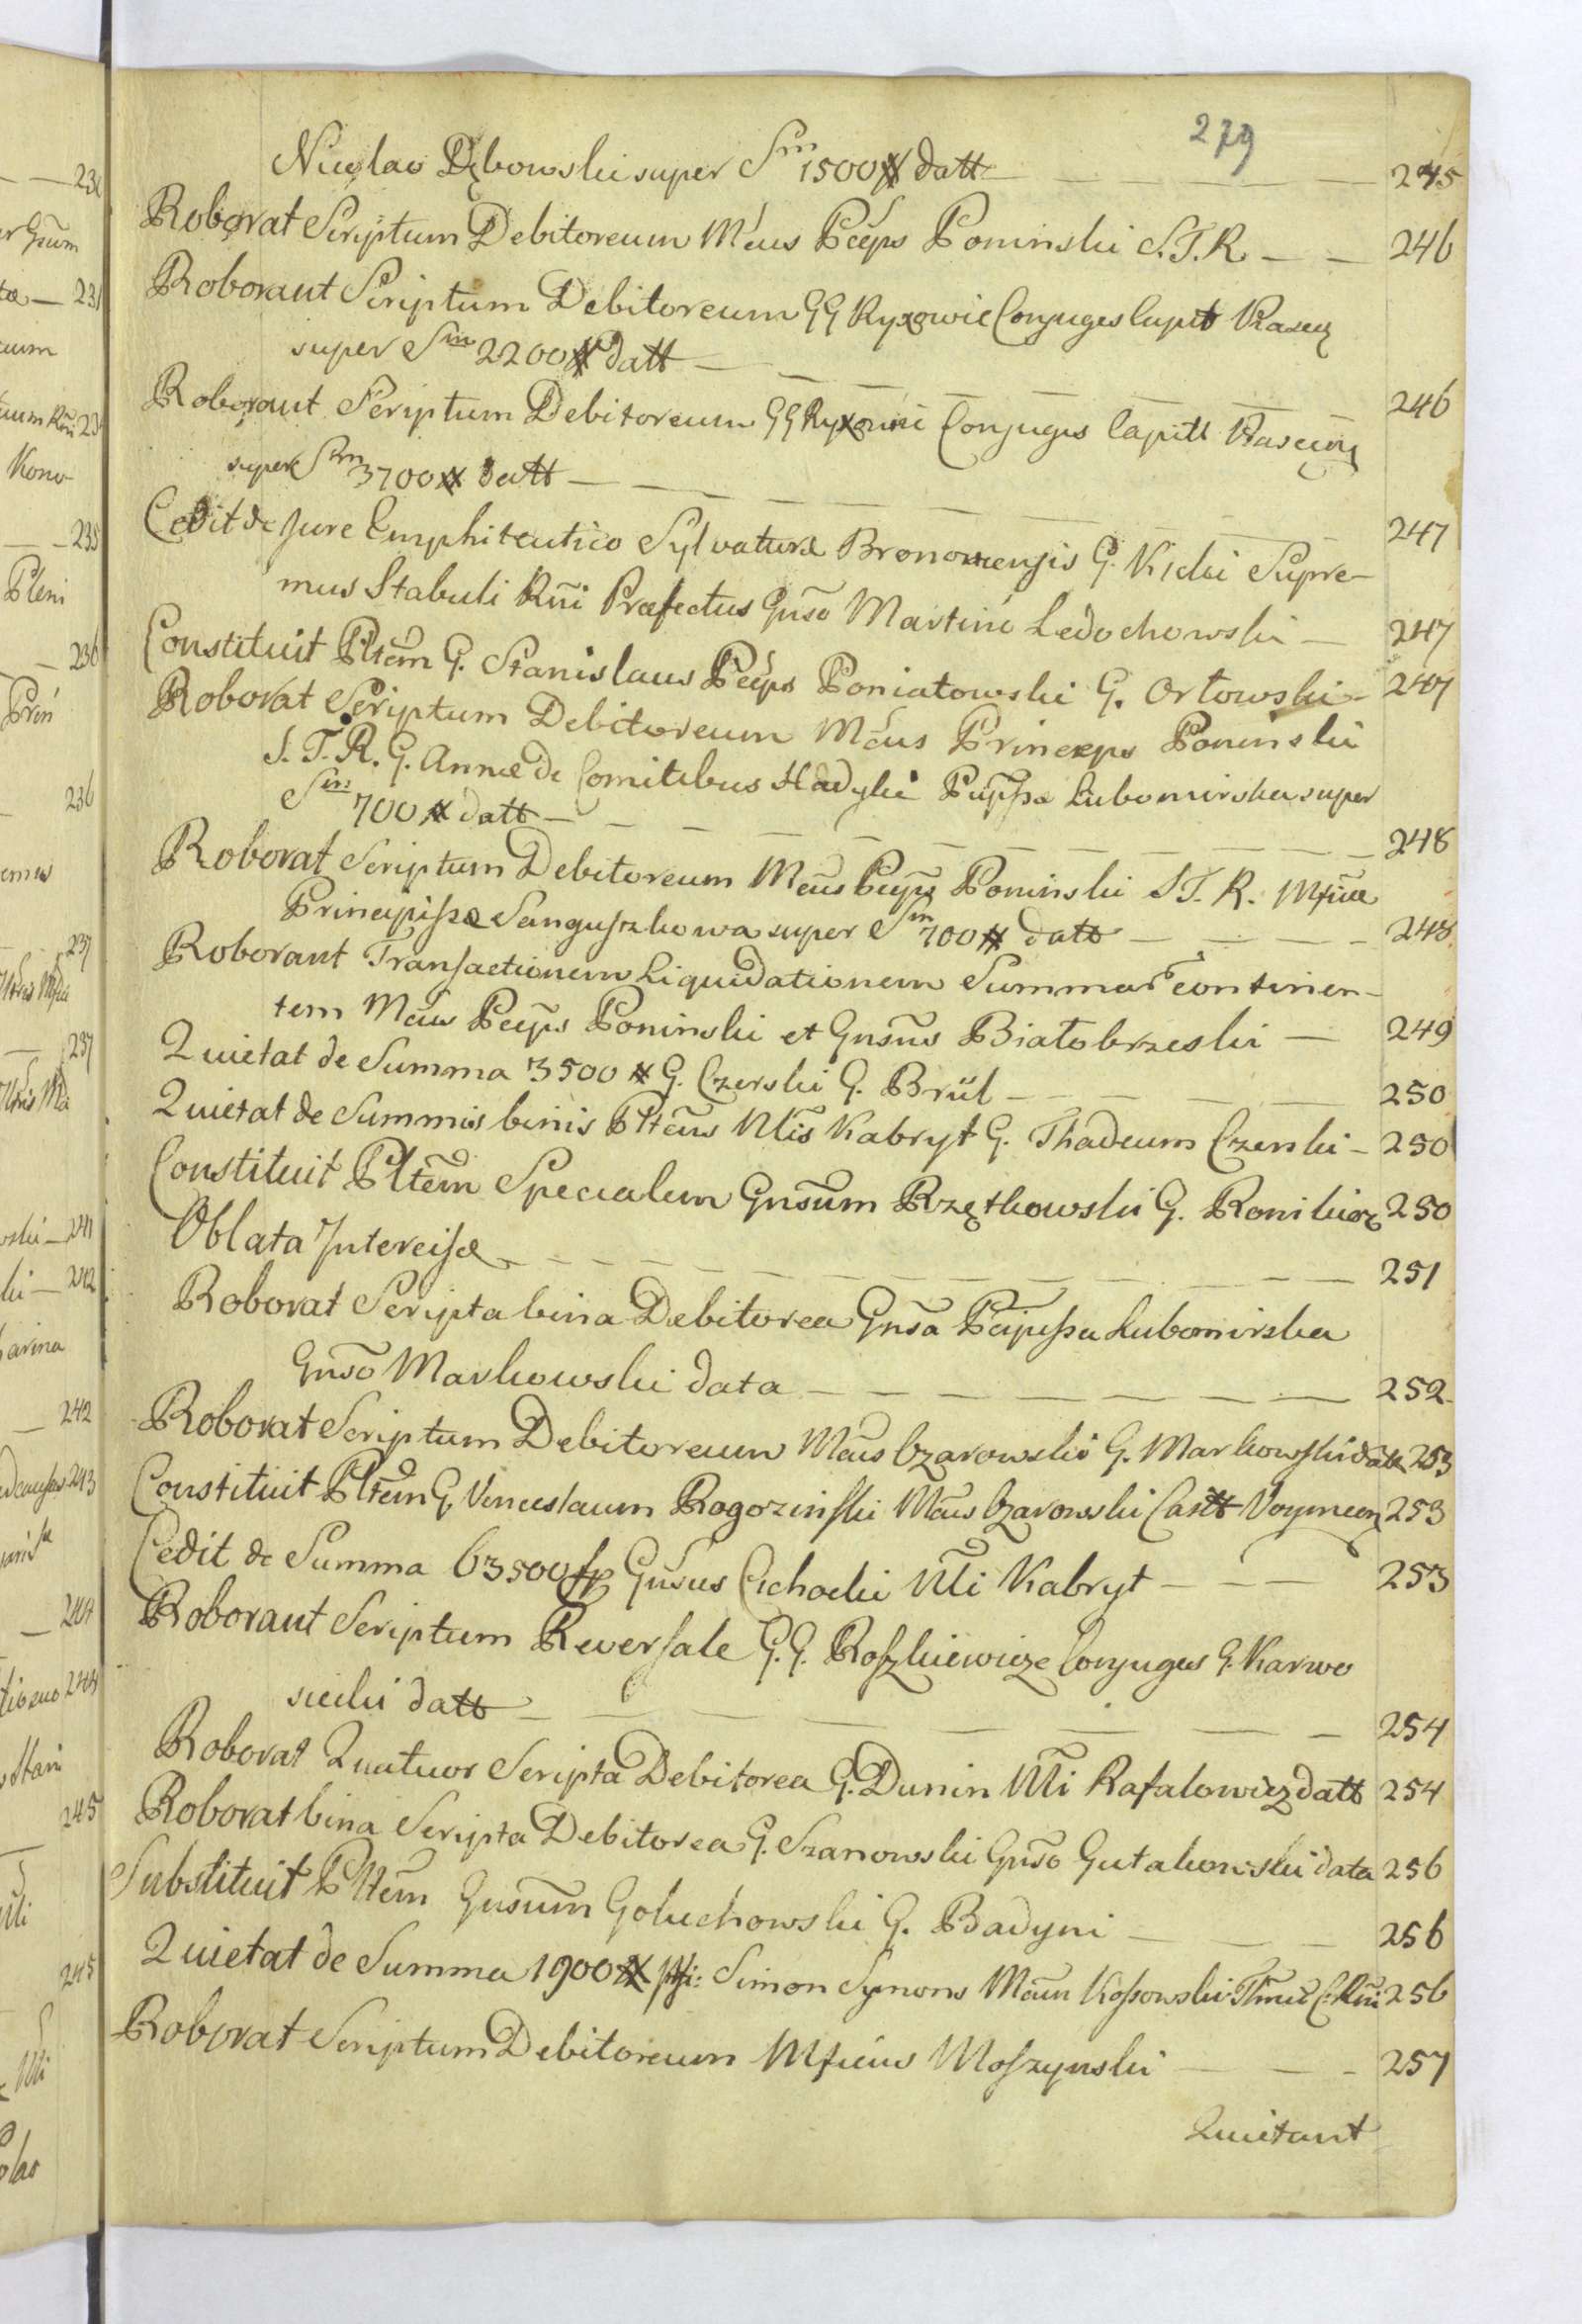 279
Nicolao Dębowski super Sm 1500 # datt — 245
Roborat Scriptum Debitoreum Mcus Pceps Poninski S.T.R. — — 246
Roborant Scriptum Debitoreum GG Ryxowie Conjuges Capit
super Sm 2200 # datt — 246
Roborant Scriptum Debitoreum GG Conjuges Capitt
super Sm 3700 # datt — 247
Cedit de Jure Emphiteutico Sylvaturæ G. Kicki Supre-
mus Stabuli Rñi Præfectus Gnso Martino Ledochowski — 247
Constituit Pltem G. Stanislaus Pceps Poniatowski G. Orłowski — 247
Roborat Scriptum Debitoreum Mcus Princeps Poninski
S.T.R. G. Annæ de Comitibus Hadyki Lubomirska super
Sm 700 # datt — 248
Roborat Scriptum Debitoreum Mcus Pceps Poninski S.T.R.
Principissæ Sanguszkowa super Sm 700 # datt — 248
Roborant Transactionem Liquidationem Summar continen-
tem Mcus Pceps Poninski et Gnsus Białobrzeski — 249
Quietat de Summa 3500 # G. Czerski G. Brül — 250
Quietat de Summis binis Pltcus Nlis Kabryt G. Thadeum Czerski — 250
Constituit Pltem Specialem Gnsum Rzętkowski G. Ronikier 250
Oblata Intercisæ — 251
Roborat Scripta bina Debitorea Gnsa Lubomirska
Gnso Markowski data — 252
Roborat Scriptum Debitoreum Mcus Ozarowski G. Markowski datt 253
Constituit Pltem G. Venceslaum Rogozinski Mcus Ozarowski Castt 253
Cedit de Summa 63500 fp Gnsus Cichocki Nli Kabryt — 253
Roborant Scriptum Reversale G.G. Roszkiewicze Conjuges G. Karwo
siecki datt — 254
Roborat Quatuor Scripta Debitorea G. Dunin Nli Rafalowicz datt 254
Roborat bina Scripta Debitorea G. Szanowski Gnso Gutakowski data 256
Substituit Pltem Gnsum Goluchowski G. Badyni — 256
Quietat de Summa 1900 # Simon Symons Mcum Kossowski 256
Roborat Scriptum Debitoreum Mficus Moszynski — 257
Quietant